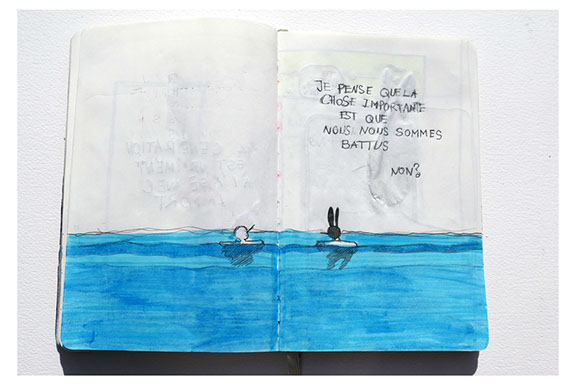 JE PENSE QUE LA
CHOSE IMPORTANTE
EST QUE
NOUS NOUS SOMMES
BATTUS
NON?